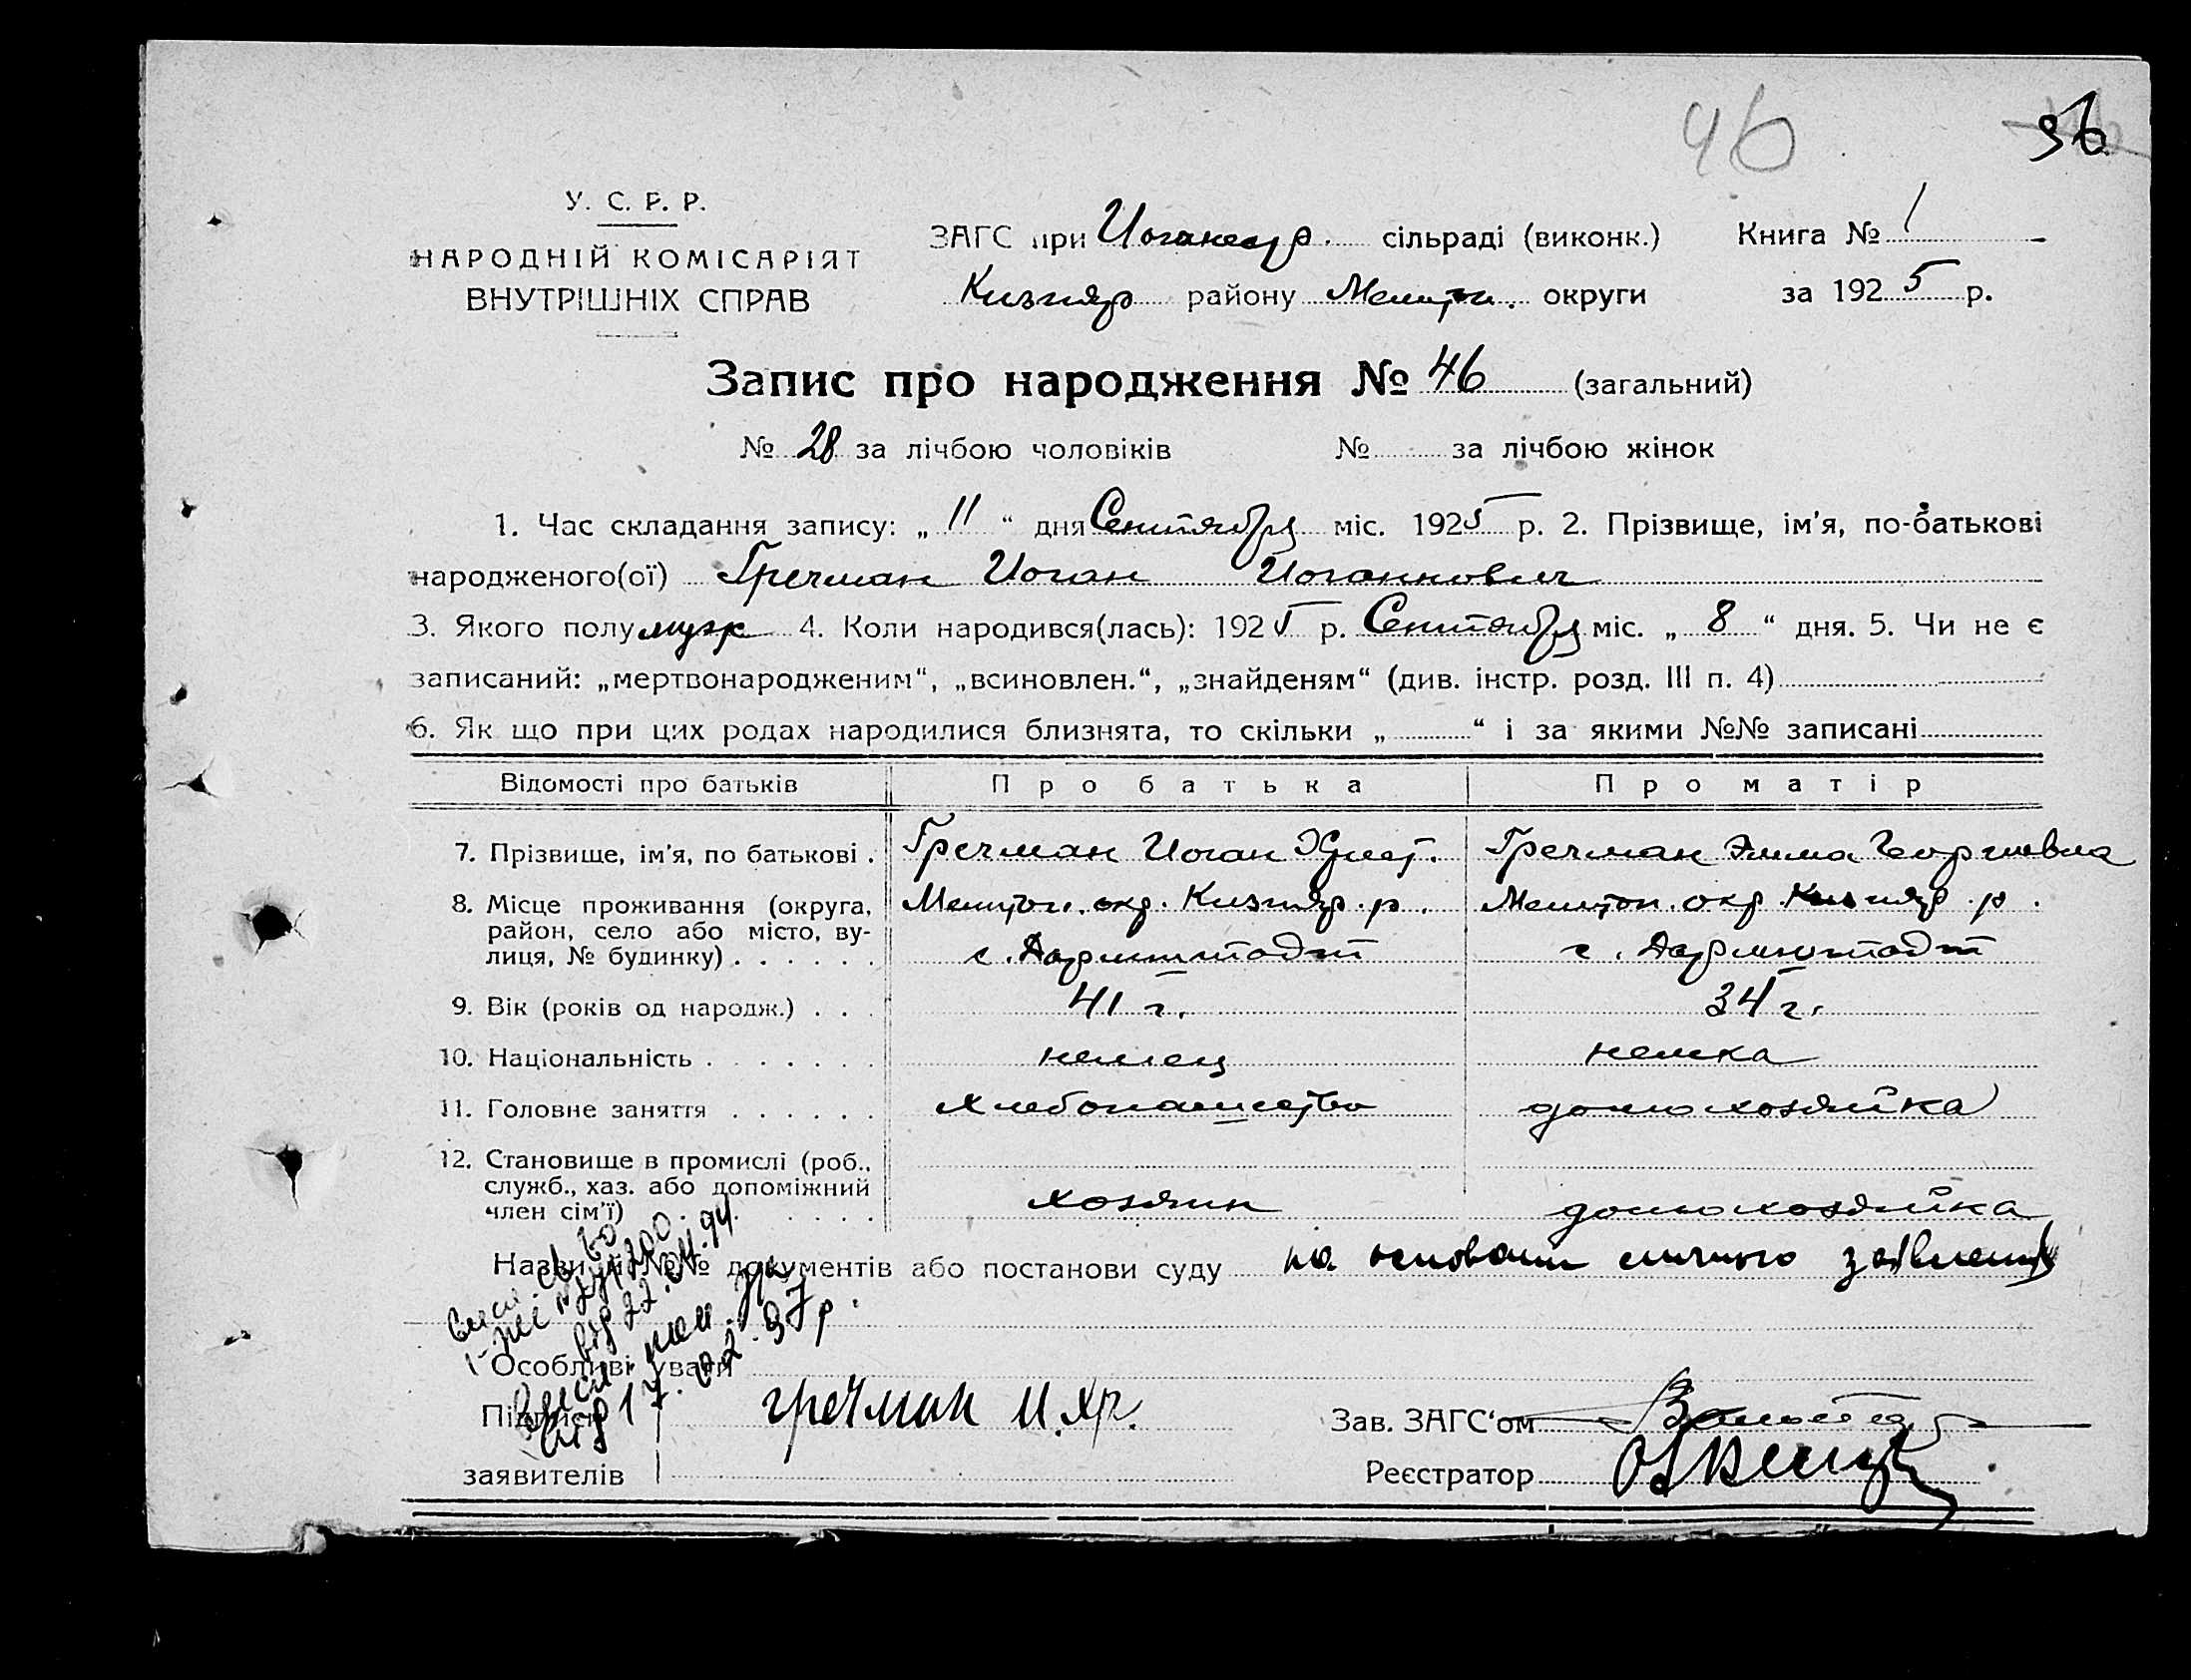 46
96
У. С. Р. Р.
НАРОДНІЙ КОМІСАРІЯТ
ВНУТРІШНІХ СПРАВ
ЗАГС при сільраді (виконк.) Книга № 1
Кизияр району Мелитоп. округи за 1925 р.
Запис про народження № 46 (загальний)
№ 28 за лічбою чоловіків № за лічбою жінок
1. Час складання запису: „ 11 “ дня Сентября міс. 1925 р. 2. Прізвище, ім’я, по-батькові
народженого(ої) Гречман Иоган Иоганнович
3. Якого полу муж 4. Коли народився(лась): 1925 р. Сентября міс. „ 8 “ дня. 5. Чи не є
записаний: „мертвонародженим“, „всиновлен.“, „знайденям“ (див. інстр. розд. III п. 4)
6. Як що при цих родах народилися близнята, то скільки „ “ і за якими №№ записані
Відомості про батьків Про батька Про матір
7. Прізвище, ім’я, по батькові . Гречман Иоган Гречман Эмма Георгиевна
8. Місце проживання (округа, Мелитоп. окр. Кизияр. р. Мелитоп. окр Кизияр. р.
район, село або місто, ву-
лиця, № будинку) . . . . . . с. Дармштадт с. Дармштадт
9. Вік (років од народж.) . . . 41 г. 34 г.
10. Національність . . . . . . . немец немка
11. Головне заняття . . . . . . Хлебопашество домохозяйка
12. Становище в промислі (роб.,
служб., хаз. або допоміжний
член сім’ї) . . . . хозяин домохозяйка
Назви і №№ документів або постанови суду на основании личного заявления
Особливі уваги
Підписи гречман И. Хр. Зав. ЗАГС‘ом
заявителів Реєстратор
від 22.04.94
від 17.02.97р.